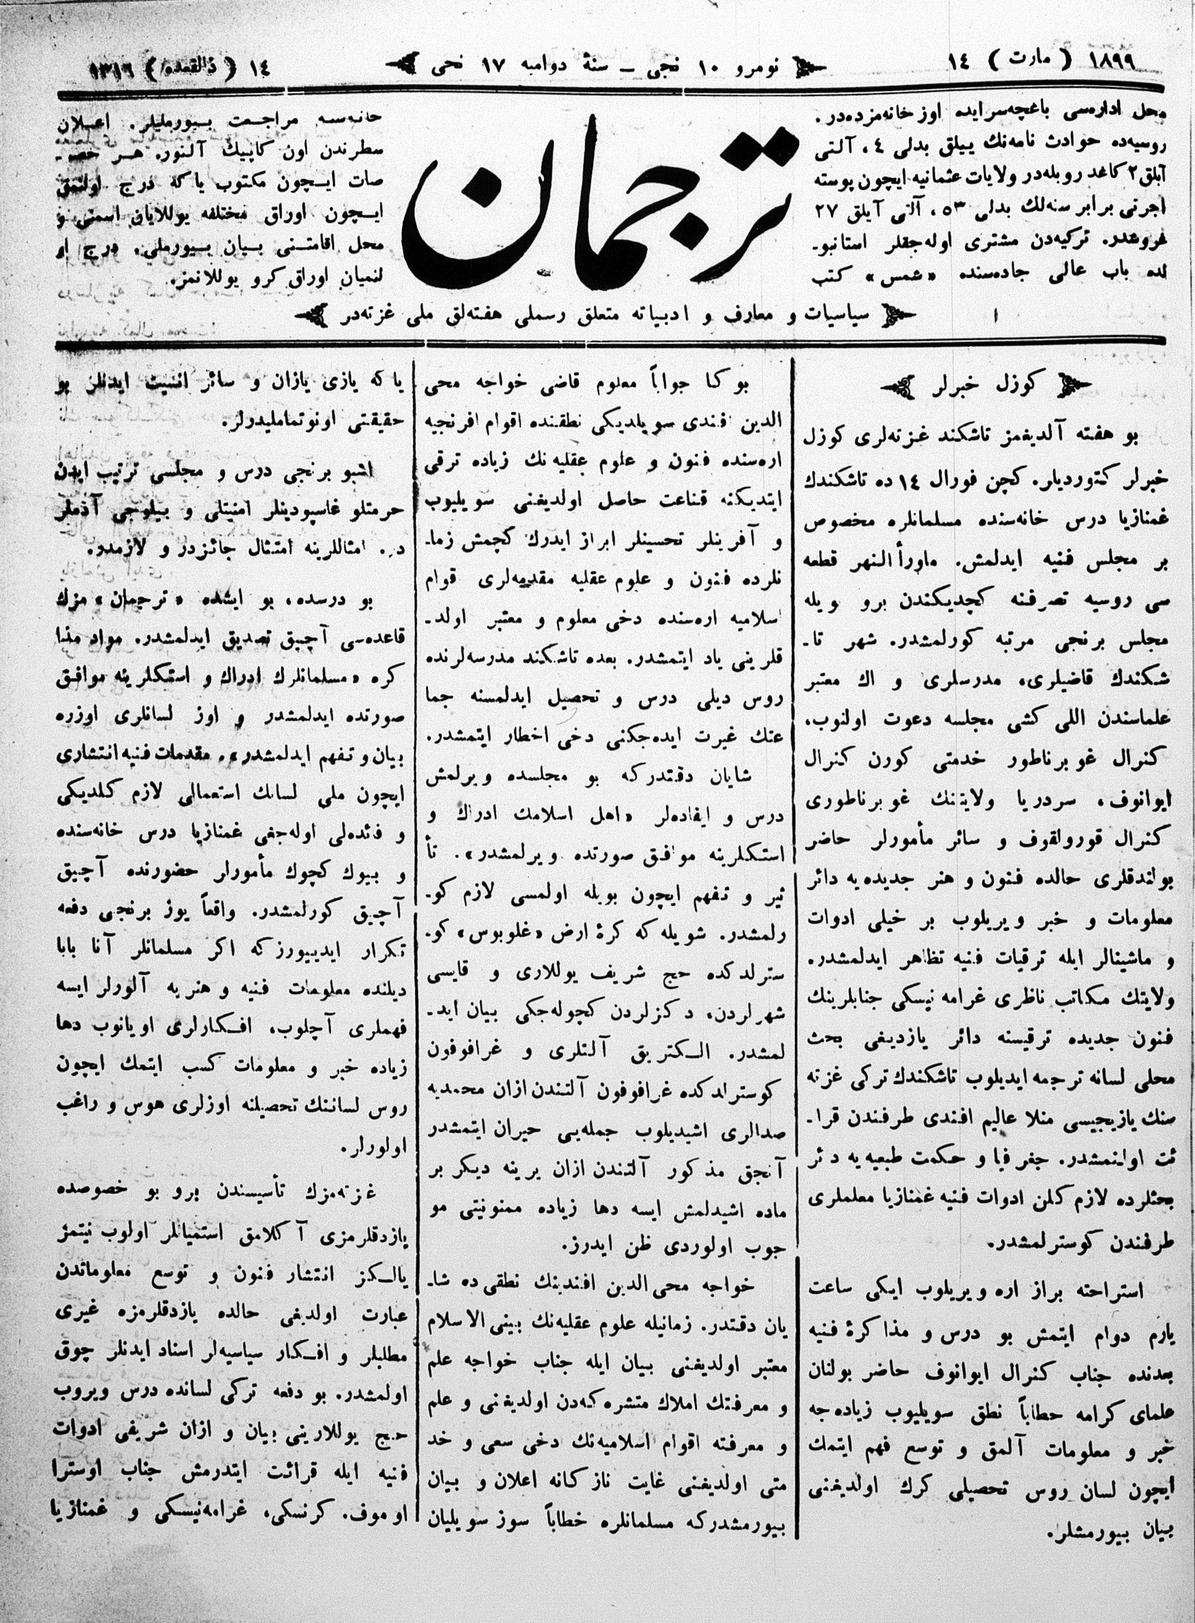 ١٨٩٩ ( مارت ) ١٤
نومرو ١٠ نجى ـ سنۀ دوامیه ١٧ نحى
١٤ ( ذالقعده ) ١٣١٦
محل اداره‌سى باغچه‌سرایده اوز خانه‌مزده‌در.
روسیه‌ده حوادث نامه‌نك ییللق بدلى ٤، آلتى
آیلق ٢ كاغد روبله‌در ولایات عثمانیه ایچون پوسته
اجرتى برابر سنه‌لك بدلى ٥٣، آلتى آیلق ٢٧
غروشدر. تركیه‌دن مشترى اوله‌جقلر استانبو-
لده باب عالى جاده‌سنده «شمس» كتب
ترجمان
خانه‌سه مراجعت بیورملیلر. اعلان
سطرندن اون كاپیك آلنور. هر خصو-
صات ایچون مكتوب یاكه درج اولنمق
ایچون اوراق مختلفه یوللایان اسمنى و
محل اقامتنى بیان بیورملى. درج او
لنمیان اوراق كرو یوللانمز.
سیاسیات و معارف و ادبیاته متعلق رسملى هفته‌لق ملى غزته‌در
كوزل خبرلر
بو هفته آلدیغمز تاشكند غزته‌لرى كوزل
خبرلر كتوردیلر. كچن فورال ١٤ ده تاشكندك
غمنازیا درس خانه‌سنده مسلمانلره مخصوص
بر مجلس فنیه ایدلمش. ماورأ النهر قطعه
سى روسیه تصرفنه كچدیكندن برو بویله
مجلس برنجى مرتبه كورلمشدر. شهر تا-
شكندك قاضیلرى، مدرسلرى و اك معتبر
علماسندن اللى كشى مجلسه دعوت اولنوب،
كنرال غوبرناطور خدمتى كورن كنرال
ایوانوف، سردریا ولایتنك غوبرناطورى
كنرال قورولقوف و سائر مأمورلر حاضر
بولندقلرى حالده فنون و هنر جدیده‌یه دائر
معلومات و خبر ویریلوب بر خیلى ادوات
و ماشینالر ایله ترقیات فنیه تظاهر ایدلمشدر.
ولایتك مكاتب ناظرى غرامه‌نیسكى جنابلرینك
فنون جدیده ترقیسنه دائر یازدیغى بحث
محلى لسانه ترجمه ایدیلوب تاشكندك تركى غزته
سنك یازیجیسى منلا عالیم افندى طرفندن قرا-
ئت اولنمشدر. جغرفیا و حكمت طبعیه‌یه دئر
بحثلرده لازم كلن ادوات فنیه غمنازیا معلملرى
طرفندن كوسترلمشدر.
استراحته براز اره ویریلوب ایكى ساعت
یارم دوام ایتمش بو درس و مذاكرۀ فنیه
بعدنده جناب كنرال ایوانوف حاضر بولنان
علماى كرامه خطاباً نطق سویلیوب زیاده‌جه
خبر و معلومات آلمق و توسع فهم ایتمك
ایچون لسان روس تحصیلى كرك اولدیغنى
بیان بیورمشلر.
بوكا جواباً معلوم قاضى خواجه محى
الدین افندى سویلدیكى نطقنده اقوام افرنجیه
اره‌سنده فنون و علوم عقلیه‌نك زیاده ترقى
ایتدیكنه قناعت حاصل اولدیغنى سویلیوب
و آفرینلر تحسینلر ابراز ایدرك كچمش زما-
نلرده فنون و علوم عقلیه مقدمه‌لرى قوام
اسلامیه اره‌سنده دخى معلوم و معتبر اولد-
قلرینى یاد ایتمشدر. بعده تاشكند مدرسه‌لرنده
روس دیلى درس و تحصیل ایدلمسنه جما
عتك غیرت ایده‌جكنى دخى اخطار ایتمشدر.
شایان دقتدركه بو مجلسده ویرلمش
درس و ایفاده‌لر «اهل اسلامك ادراك و
استكلرینه موافق صورتده ویرلمشدر». تأ
ثیر و تفهم ایچون بویله اولمسى لازم كو-
رلمشدر. شویله كه كرۀ ارض «غلوبوس» كو-
سترلدكده حج شریف یوللارى و قایسى
شهرلردن، دكزلردن كچوله‌جكى بیان اید-
لمشدر. الكتریق آلتلرى و غرافوفون
كوسترلدكده غرافوفون آلتندن ازان محمدیه
صدالرى اشیدیلوب جمله‌یى حیران ایتمشدر
آنجق مذكور آلتندن ازان یرینه دیكر بر
ماده اشیدلمش ایسه دها زیاده ممنونیتى مو
جوب اولوردى ظن ایدرز.
خواجه محى‌الدین افندینك نطقى ده شا-
یان دقتدر. زمانیله علوم عقلیه‌نك بینى الاسلام
معتبر اولدیغنى بیان ایله جناب خواجه علم
و معرفتك املاك متشركه‌دن اولدیغنى و علم
و معرفته اقوام اسلامیه‌نك دخى سعى و خد
متى اولدیغنى غایت نازكانه اعلان و بیان
بیورمشدركه مسلمانلره خطاباً سوز سویلیان
یاكه یازى یازان و سائر اننیت ایدنلر بو
حقیقتى اونوتمامالیدرلر.
اشبو برنجى درس و مجلسى ترتیب ایدن
حرمتلو غاسپودینلر امنیتلى و بیلوجى آدملر
در. امثاللرینه امتثال جائزدر و لازمدر.
بو درسده، بو ایشده «ترجمان» مزك
قاعده‌سى آچیق تصدیق ایدلمشدر. مواد مذا
كره «مسلمانلرك ادراك و استكلرینه موافق
صورتده ایدلمشدر و اوز لسانلرى اوزره
بیان و تفهم ایدلمشدر». مقدمات فنیه انتشارى
ایچون ملى لسانك استعمالى لازم كلدیكى
و فائده‌لى اوله‌جغى غمنازیا درس خانه‌سنده
و بیوك كچوك مأمورلر حضورنده آچیق
آچیق كورلمشدر. واقعاً یوز برنجى دفعه
تكرار ایدییورزكه اكر مسلمانلر آنا بابا
دیلنده معلومات فنیه و هنریه آلورلر ایسه
فهملرى آچلوب، افكارلرى اویانوب دها
زیاده خبر و معلومات كسب ایتمك ایچون
روس لساننك تحصیلنه اوزلرى هوس و راغب
اولورلر.
غزته‌مزك تأسیسندن برو بو خصوصده
یازدقلرمزى آكلامق استمیانلر اولوب نیتمز
یالكز انتشار فنون و توسع معلوماتدن
عبارت اولدیغى حالده یازدقلرمزه غیرى
مطلبلر و افكار سیاسیه‌لر اسناد ایدنلر چوق
اولمشدر. بو دفعه تركى لسانده درس ویروب
حج یوللارینى بیان و ازان شریفى ادوات
فنیه ایله قرائت ایتدرمش جناب اوسترا
اوموف. كرنسكى، غرامه‌نیسكى و غمنازیا